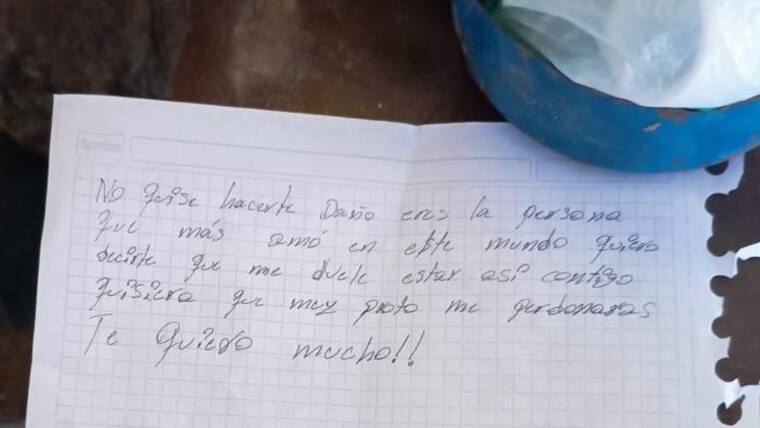 Scribe
No quise hacerte Daño eres la persona
que más amó en este mundo quiero
decirte que me duele estar asi contigo
quisiera que muy proto me perdonaras
Te quiero mucho!!